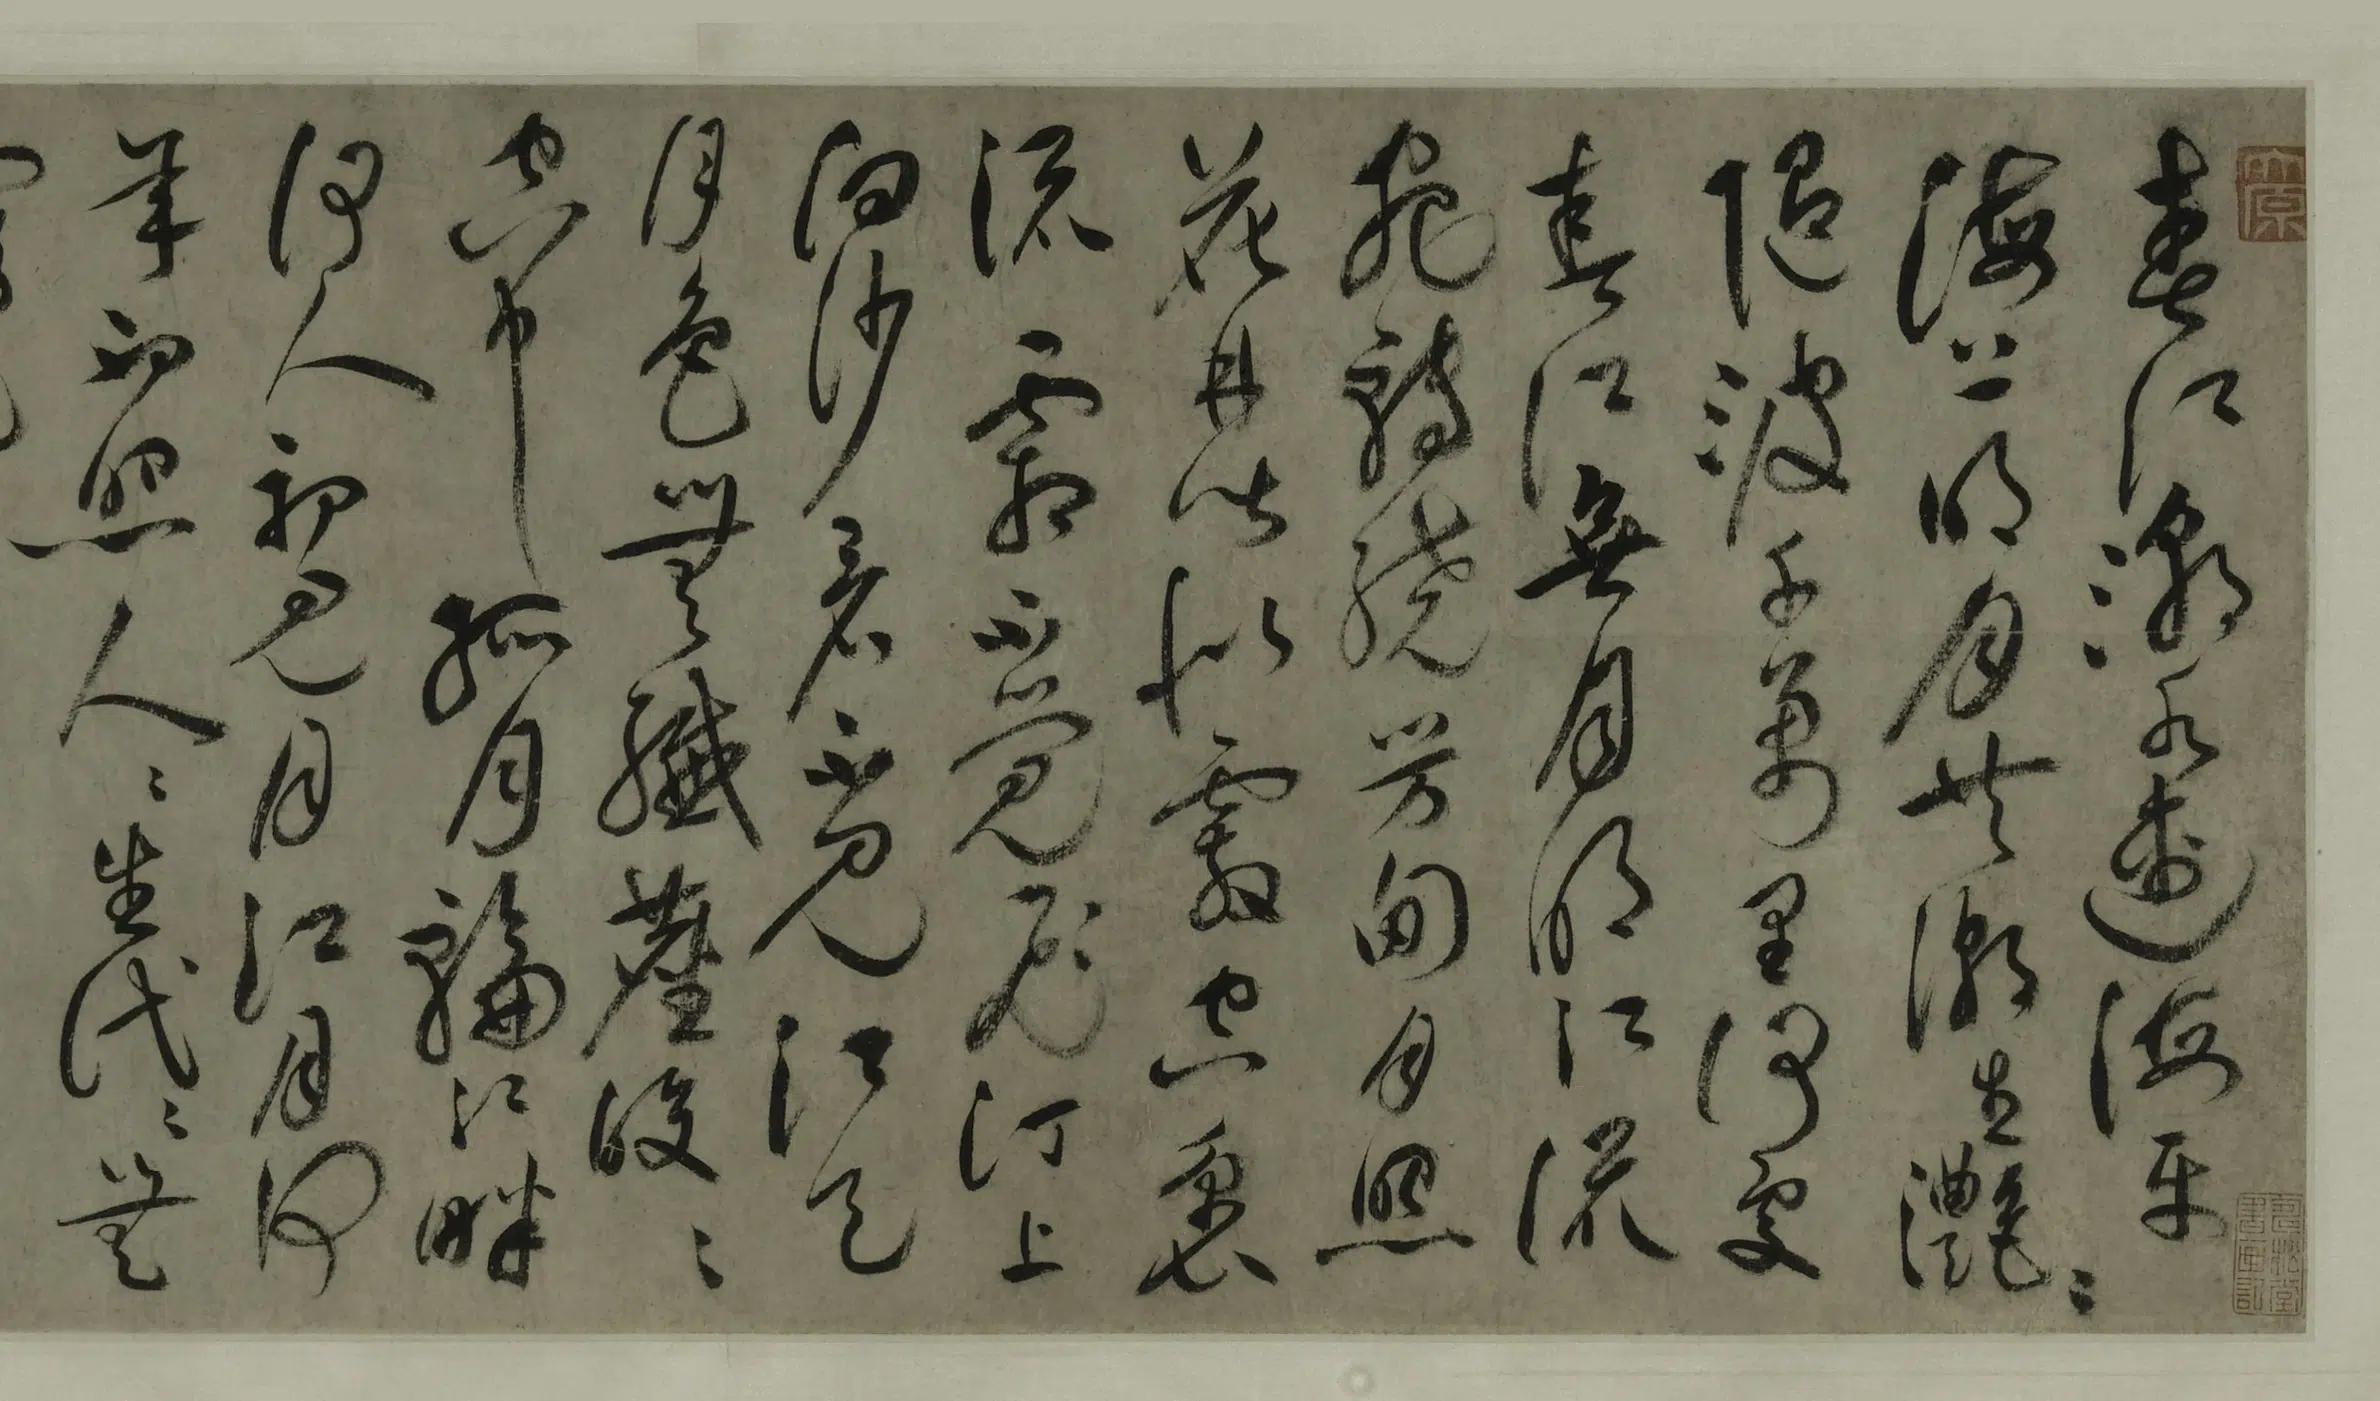 春江潮水連海平
海上明月共潮生灩〻
隨波千萬里何處
春江無月明江流
宛轉繞芳甸月照
花林皆似霰空裏
流霜不覺飛汀上
白沙看不見江天
月色無纖塵皎〻
空中孤月輪江畔
何人初見月江月何
年初照人〻生代〻無